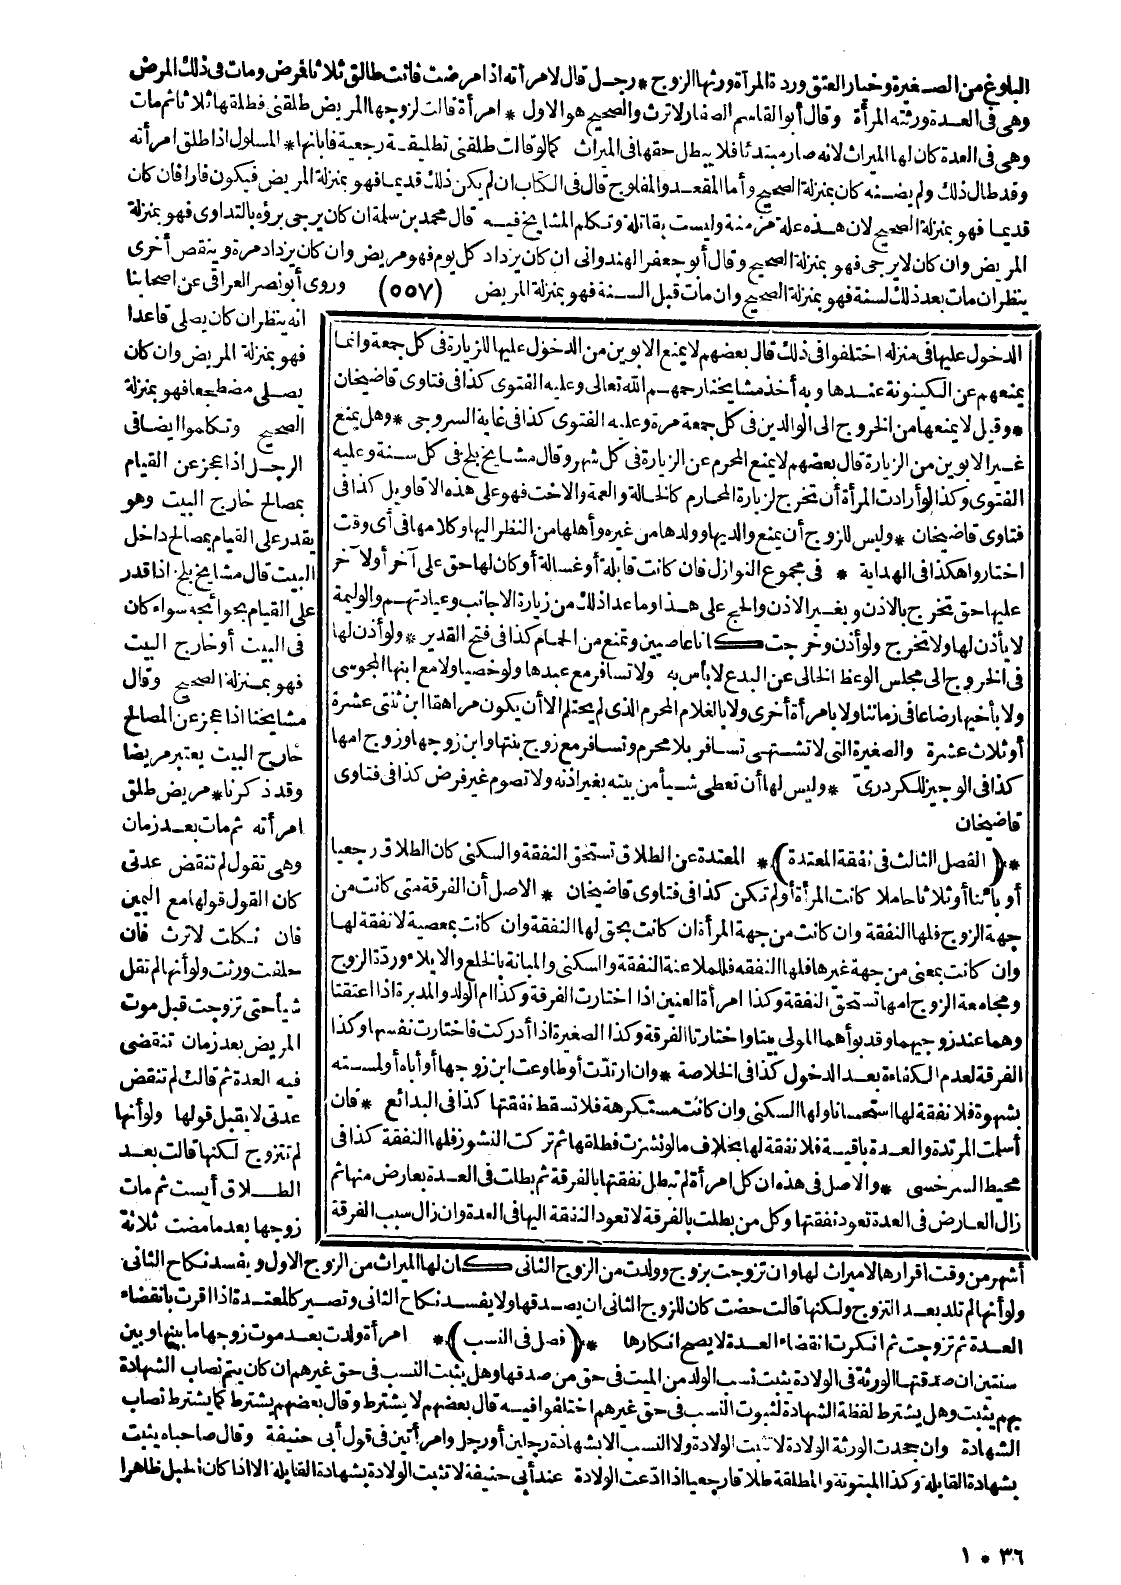 البلوغ من الصغيرة وخيار العتق وردة المرآة ورثها الزوج * رجل قال لامرأته اذا مرضت فانت طالق ثلاثا فمرض ومات فى ذلك المرض
وهى فى العدة ورثته المرأة وقال أبو القاسم الصفار لا ترث والصحيح هو الاول * امرأة قالت لزوجها المريض طلقنى فطلقها ثلاثا ثم مات
وهى فى العدة كان لها الميراث لانه صار مبتدئا فلا يبطل حقها فى الميراث كما لو قالت طلقنى تطليقة رجعية فأبانها * المسلول اذا طلق امرأته
وقد طال ذلك ولم يضنه كان بمنزلة الصحيح وأما المقعد والمفلوج قال فى الكتاب ان لم يكن ذلك قديما فهو بمنزلة المريض فيكون فارا فان كان
قديما فهو بمنزلة الصحيح لان هذه علة مزمنة وليست بقاتلة وتكلم المشايخ فيه قال محمد بن سلمة ان كان يرجى برؤه بالتداوى فهو بمنزلة
المريض وان كان لا يرجى فهو بمنزلة الصحيح وقال أبو جعفر الهندوانى ان كان يزداد كل يوم فهو مريض وان كان يزداد مرة وينقص أخرى
ينظر ان مات بعد ذلك لسنة فهو بمنزلة الصحيح وان مات قبل السنة فهو بمنزلة المريض (٥٥٧) وروى أبو نصر العراقى عن اصحابنا
انه ينظر ان كان يصلى قاعدا
فهو بمنزلة المريض وان كان
يصلى مضطجعا فهو بمنزلة
الصحيح وتكلموا ايضا فى
الرجل اذا عجز عن القيام
بمصالح خارج البيت وهو
يقدر على القيام بمصالح داخل
البيت قال مشايخ بلخ اذا قدر
على القيام بحوائجه سواء كان
فى البيت أو خارج البيت
فهو بمنزلة الصحيح وقال
مشايخنا اذا عجز عن المصالح
خارج البيت يعتبر مريضا
وقد ذكرنا * مريض طلق
امرأته ثم مات بعد زمان
وهى تقول لم تنقض عدتى
كان القول قولها مع اليمين
فان نكلت لا ترث فان
حلفت ورثت ولو أنها لم تقل
شيأ حتى تزوجت قبل موت
المريض بعد زمان تنقضى
فيه العدة ثم قالت لم تنقض
عدتى لا يقبل قولها ولو أنها
لم تتزوج لكنها قالت بعد
الطلاق أيست ثم مات
زوجها بعد ما مضت ثلاثة
الدخول عليها فى منزله اختلفوا فى ذلك قال بعضهم لا يمنع الابوين من الدخول عليها للزيارة فى كل جمعة وانما
يمنعهم عن الكينونة عندها وبه أخذ مشايخنا رحمهم الله تعالى وعليه الفتوى كذا فى فتاوى قاضيخان
* وقيل لا يمنعها من الخروج الى الوالدين فى كل جمعة مرة وعليه الفتوى كذا فى غاية السروجى * وهل يمنع
غير الابوين من الزيارة قال بعضهم لا يمنع المحرم عن الزيارة فى كل شهر وقال مشايخ بلخ فى كل سنة وعليه
الفتوى وكذا لو أرادت المرأة أن تخرج لزيارة المحارم كالخالة والعمة والاخت فهو على هذه الاقاويل كذا فى
فتاوى قاضيخان * وليس للزوج أن يمنع والديها وولدها من غيره وأهلها من النظر اليها وكلامها فى أى وقت
اختاروا هكذا فى الهداية * فى مجموع النوازل فان كانت قابلة أو غسالة أو كان لها حق على آخر أو لآخر
عليها حق تخرج بالاذن وبغير الاذن والحج على هذا وما عدا ذلك من زيارة الاجانب وعيادتهم والوليمة
لا يأذن لها ولا تخرج ولو أذن وخرجت كانا عاصيين وتمنع من الحمام كذا فى فتح القدير * ولو أذن لها
فى الخروج الى مجلس الوعظ الخالى عن البدع لا بأس به ولا تسافر مع عبدها ولو خصيا ولا مع ابنها المجوسى
ولا بأخيها رضاعا فى زماننا ولا بامرأة أخرى ولا بالغلام المحرم الذى لم يحتلم الا أن يكون مراهقا ابن ثنتى عشرة
أو ثلاث عشرة والصغيرة التى لا تشتهى تسافر بلا محرم وتسافر مع زوج بنتها وابن زوجها وزوج امها
كذا فى الوجيز للكردرىّ * وليس لها أن تعطى شيأ من بيته بغير اذنه ولا تصوم غير فرض كذا فى فتاوى
قاضيخان
*﴿الفصل الثالث فى نفقة المعتدة﴾* المعتدة عن الطلاق تستحق النفقة والسكنى كان الطلاق رجعيا
أو بائنا أو ثلاثا حاملا كانت المرأة أو لم تكن كذا فى فتاوى قاضيخان * الاصل أن الفرقة متى كانت من
جهة الزوج فلها النفقة وان كانت من جهة المرأة ان كانت بحق لها النفقة وان كانت بمعصية لا نفقة لها
وان كانت بمعنى من جهة غيرها فلها النفقه فللملاعنة النفقة والسكنى والمبانة بالخلع والايلاء وردّة الزوج
ومجامعة الزوج امها تستحق النفقة وكذا امرأة العنين اذا اختارت الفرقة وكذا ام الولد والمدبرة اذا اعتقتا
وهما عند زوجيهما وقد بوأهما المولى بيتا واختارتا الفرقة وكذا الصغيرة اذا أدركت فاختارت نفسها وكذا
الفرقة لعدم الكفاءة بعد الدخول كذا فى الخلاصة * وان ارتدّت أو طاوعت ابن زوجها أو أباه أو لمسته
بشهوة فلا نفقة لها استحسانا ولها السكنى وان كانت مستكرهة فلا تسقط نفقتها كذا فى البدائع * فان
أسلمت المرتدة والعدة باقية فلا نفقة لها بخلاف ما لو نشزت فطلقها ثم تركت النشوز فلها النفقة كذا فى
محيط السرخسى * والاصل فى هذه ان كل امرأة لم تبطل نفقتها بالفرقة ثم بطلت فى العدة بعارض منها ثم
زال العارض فى العدة تعود نفقتها وكل من بطلت بالفرقة لا تعود النفقة اليها فى العدة وان زال سبب الفرقة
أشهر من وقت اقرارها لا ميراث لها وان تزوجت بزوج وولدت من الزوج الثانى كان لها الميراث من الزوج الاول ويفسد نكاح الثانى
ولو أنها لم تلد بعد التزوج ولكنها قالت حضت كان للزوج الثانى ان يصدقها ولا يفسد نكاح الثانى وتصير كالمعتدة اذا اقرت بانقضاء
العدة ثم تزوجت ثم انكرت انقضاء العدة لا يصح انكارها *﴿فصل فى النسب﴾* امرأة ولدت بعد موت زوجها ما بينها وبين
سنتين ان صدقتها الورثة فى الولادة يثبت نسب الولد من الميت فى حق من صدقها وهل يثبت النسب فى حق غيرهم ان كان يتم نصاب الشهادة
بهم يثبت وهل يشترط لفظة الشهادة لثبوت النسب فى حق غيرهم اختلفوا فيه قال بعضهم لا يشترط وقال بعضهم يشترط كما يشترط نصاب
الشهادة وان جحدت الورثة الولادة لا تثبت الولادة ولا النسب الا بشهادة رجلين أو رجل وامرأتين فى قول أبى حنيفة وقال صاحباه يثبت
بشهادة القابلة وكذا المبتوتة والمطلقة طلاقا رجعيا اذا ادّعت الولادة عند أبى حنيفة لا تثبت الولادة بشهادة القابلة الا اذا كان الحبل ظاهرا
١٠٣٦